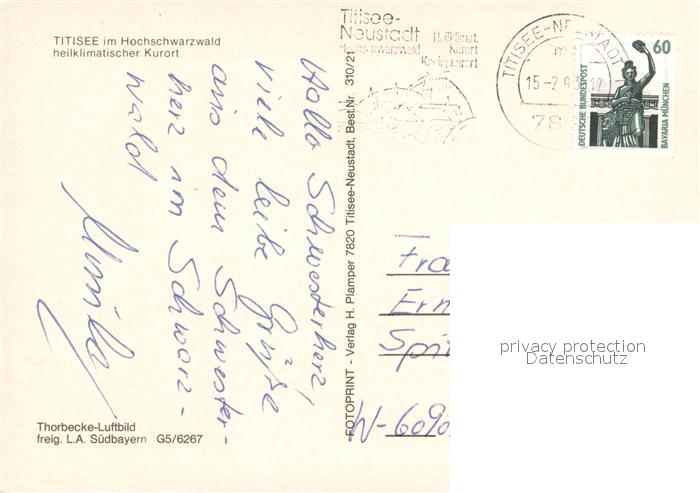 TITISEE im Hochschwarzwald
heilklimatischer Kurort
Titisee-
Neustadt
Heilklimat.
Hochschwarzwald Kurort
Kneippkurort
TITISEE-NEUSTADT
15-2.9
60
DEUTSCHE BUNDESPOST
BAVARIA MÜNCHEN
Hallo Schwesterherz,
viele leibe Grüße
aus dem Schwester-
herz im Schwarz-
wald
FOTOPRINT - Verlag H. Plamper 7820 Titisee-Neustadt, Best.Nr. 310/21
Fra
Ern
Spi
W-6090
privacy protection
Datenschutz
Thorbecke-Luftbild
freig. L.A. Südbayern G5/6267